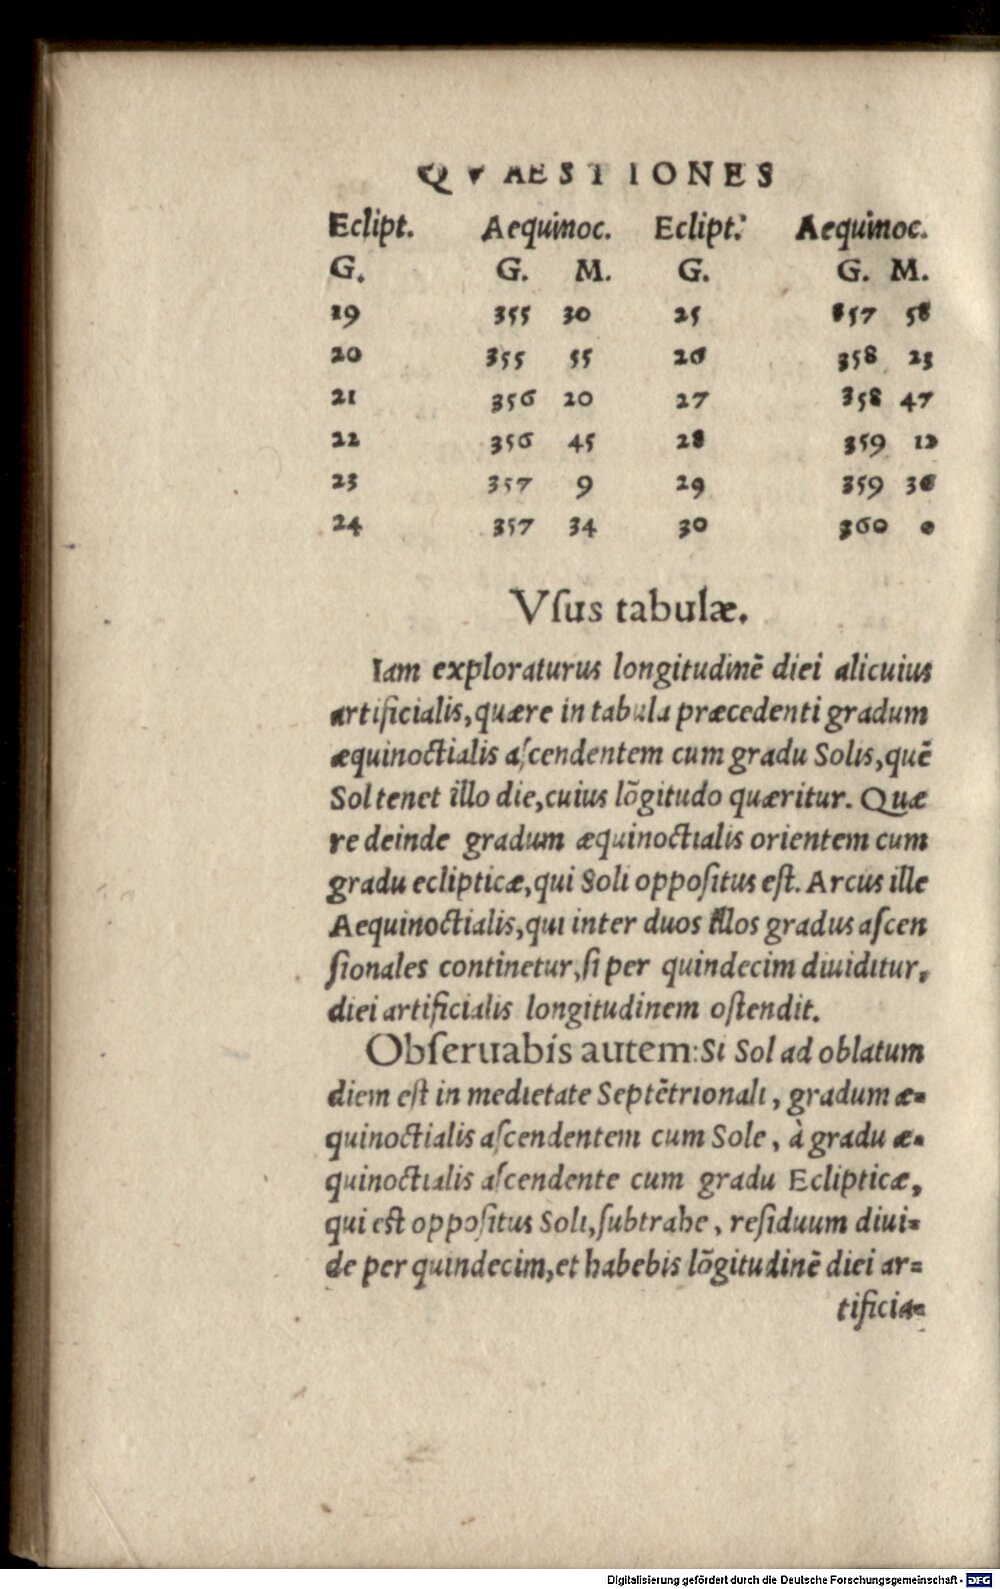 QVAESTIONES
Eclipt. Aequinoc. Eclipt. Aequinoc.
G. G. M. G. G. M.
19 355 30 25 357 58
20 355 55 26 358 23
21 356 20 27 358 47
22 356 45 28 359 12
23 357 9 29 359 36
24 357 34 30 360 0
Vſus tabulæ.
Iam exploraturus longitudinē diei alicuius
artificialis, quære in tabula præcedenti gradum
æquinoctialis aſcendentem cum gradu Solis, quē
Sol tenet illo die, cuius lōgitudo quæritur. Quæ
re deinde gradum æquinoctialis orientem cum
gradu eclipticæ, qui Soli oppoſitus eſt. Arcus ille
Aequinoctialis, qui inter duos illos gradus aſcen
ſionales continetur, ſi per quindecim diuiditur,
diei artificialis longitudinem oſtendit.
Obſeruabis autem: Si Sol ad oblatum
diem eſt in medietate Septētrionali, gradum æ-
quinoctialis aſcendentem cum Sole, à gradu æ-
quinoctialis aſcendente cum gradu Eclipticæ,
qui eſt oppoſitus Soli, ſubtrahe, reſiduum diui-
de per quindecim, et habebis lōgitudinē diei ar-
tificia-
Digitalisierung gefördert durch die Deutsche Forschungsgemeinschaft - DFG